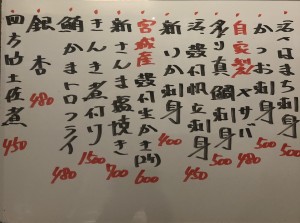 活〆はまち刺身 500
かつお刺身 500
自家製 〆サバ 480
炙り真鯛刺身 500
活殻付帆立刺身 450
新いか刺身 400
宮城産 殻付生かき(2ケ) 600
新さんま塩焼き 700
きんき煮付け 1500
鮪かまトロフライ 480
銀杏 480
四方竹土佐煮 450